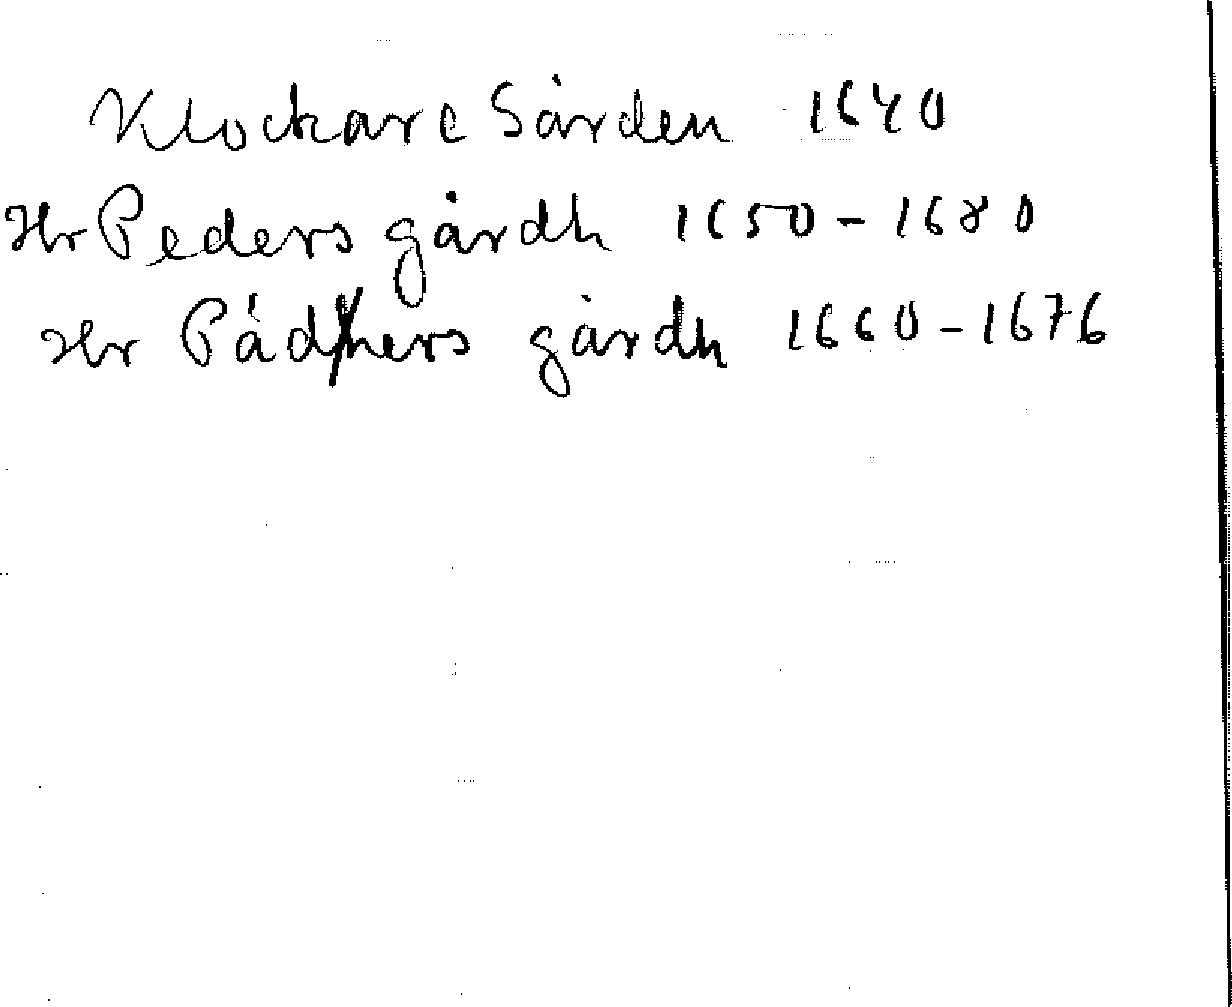 Klockare Gården 1640
Hr Peders gårdh 1650-1680
Hr gårdh 1660-1676